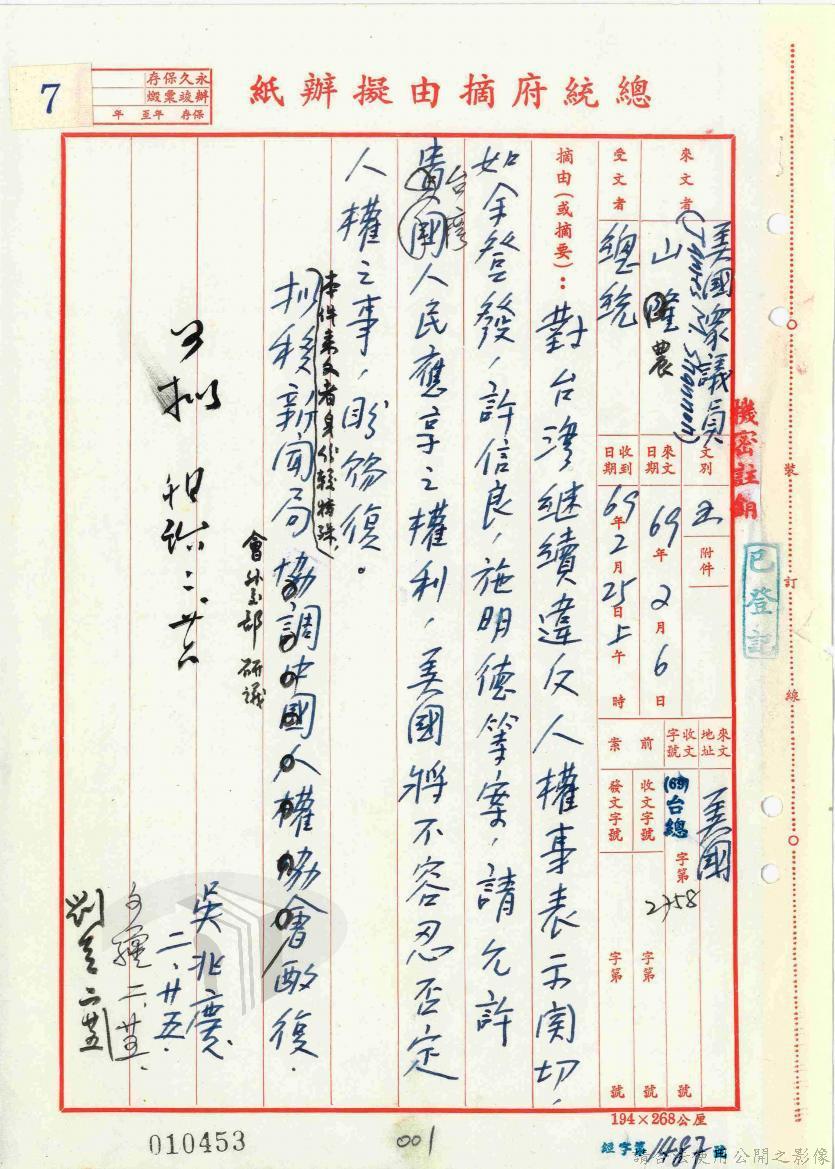 總統府摘由擬辦紙
永久保存
辦竣稟燬
保存 年至 年
7
來文者
美國眾議員
山隆農
(James M. Shannon)
受文者
總統
文別
函
附件
來文日期
69年2月6日
收到日期
69年2月25日上午 時
來文地址
美國
收文字號
(69)台總字第2758號
前案
收文字號 字第 號
發文字號 字第 號
摘由(或摘要):
對台灣繼續違反人權事表示關切,
如余登發,許信良,施明德等案,請允許
貴國人民應享之權利,美國將不容忍否定
台灣
人權之事,盼賜復。
本件來文者身份較特殊,
擬移新聞局協調中國人權協會酌復.
會外交部研議
吳兆慶
二、廿五.
二、廿五、
可擬
二、廿六
機密註銷
已登記
裝訂線
194×268公厘
經字第1487號
010453
001